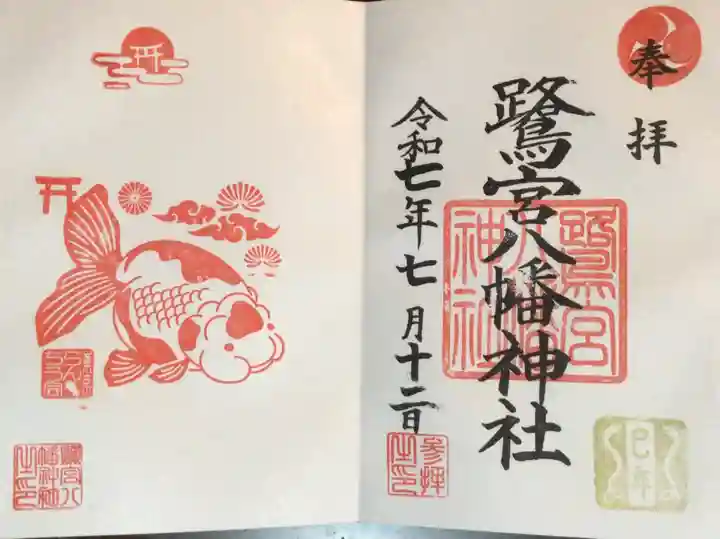 奉拝
鷺宮八幡神社
令和七年七月十二日
鷺宮八幡神社
参拝之印
巳年